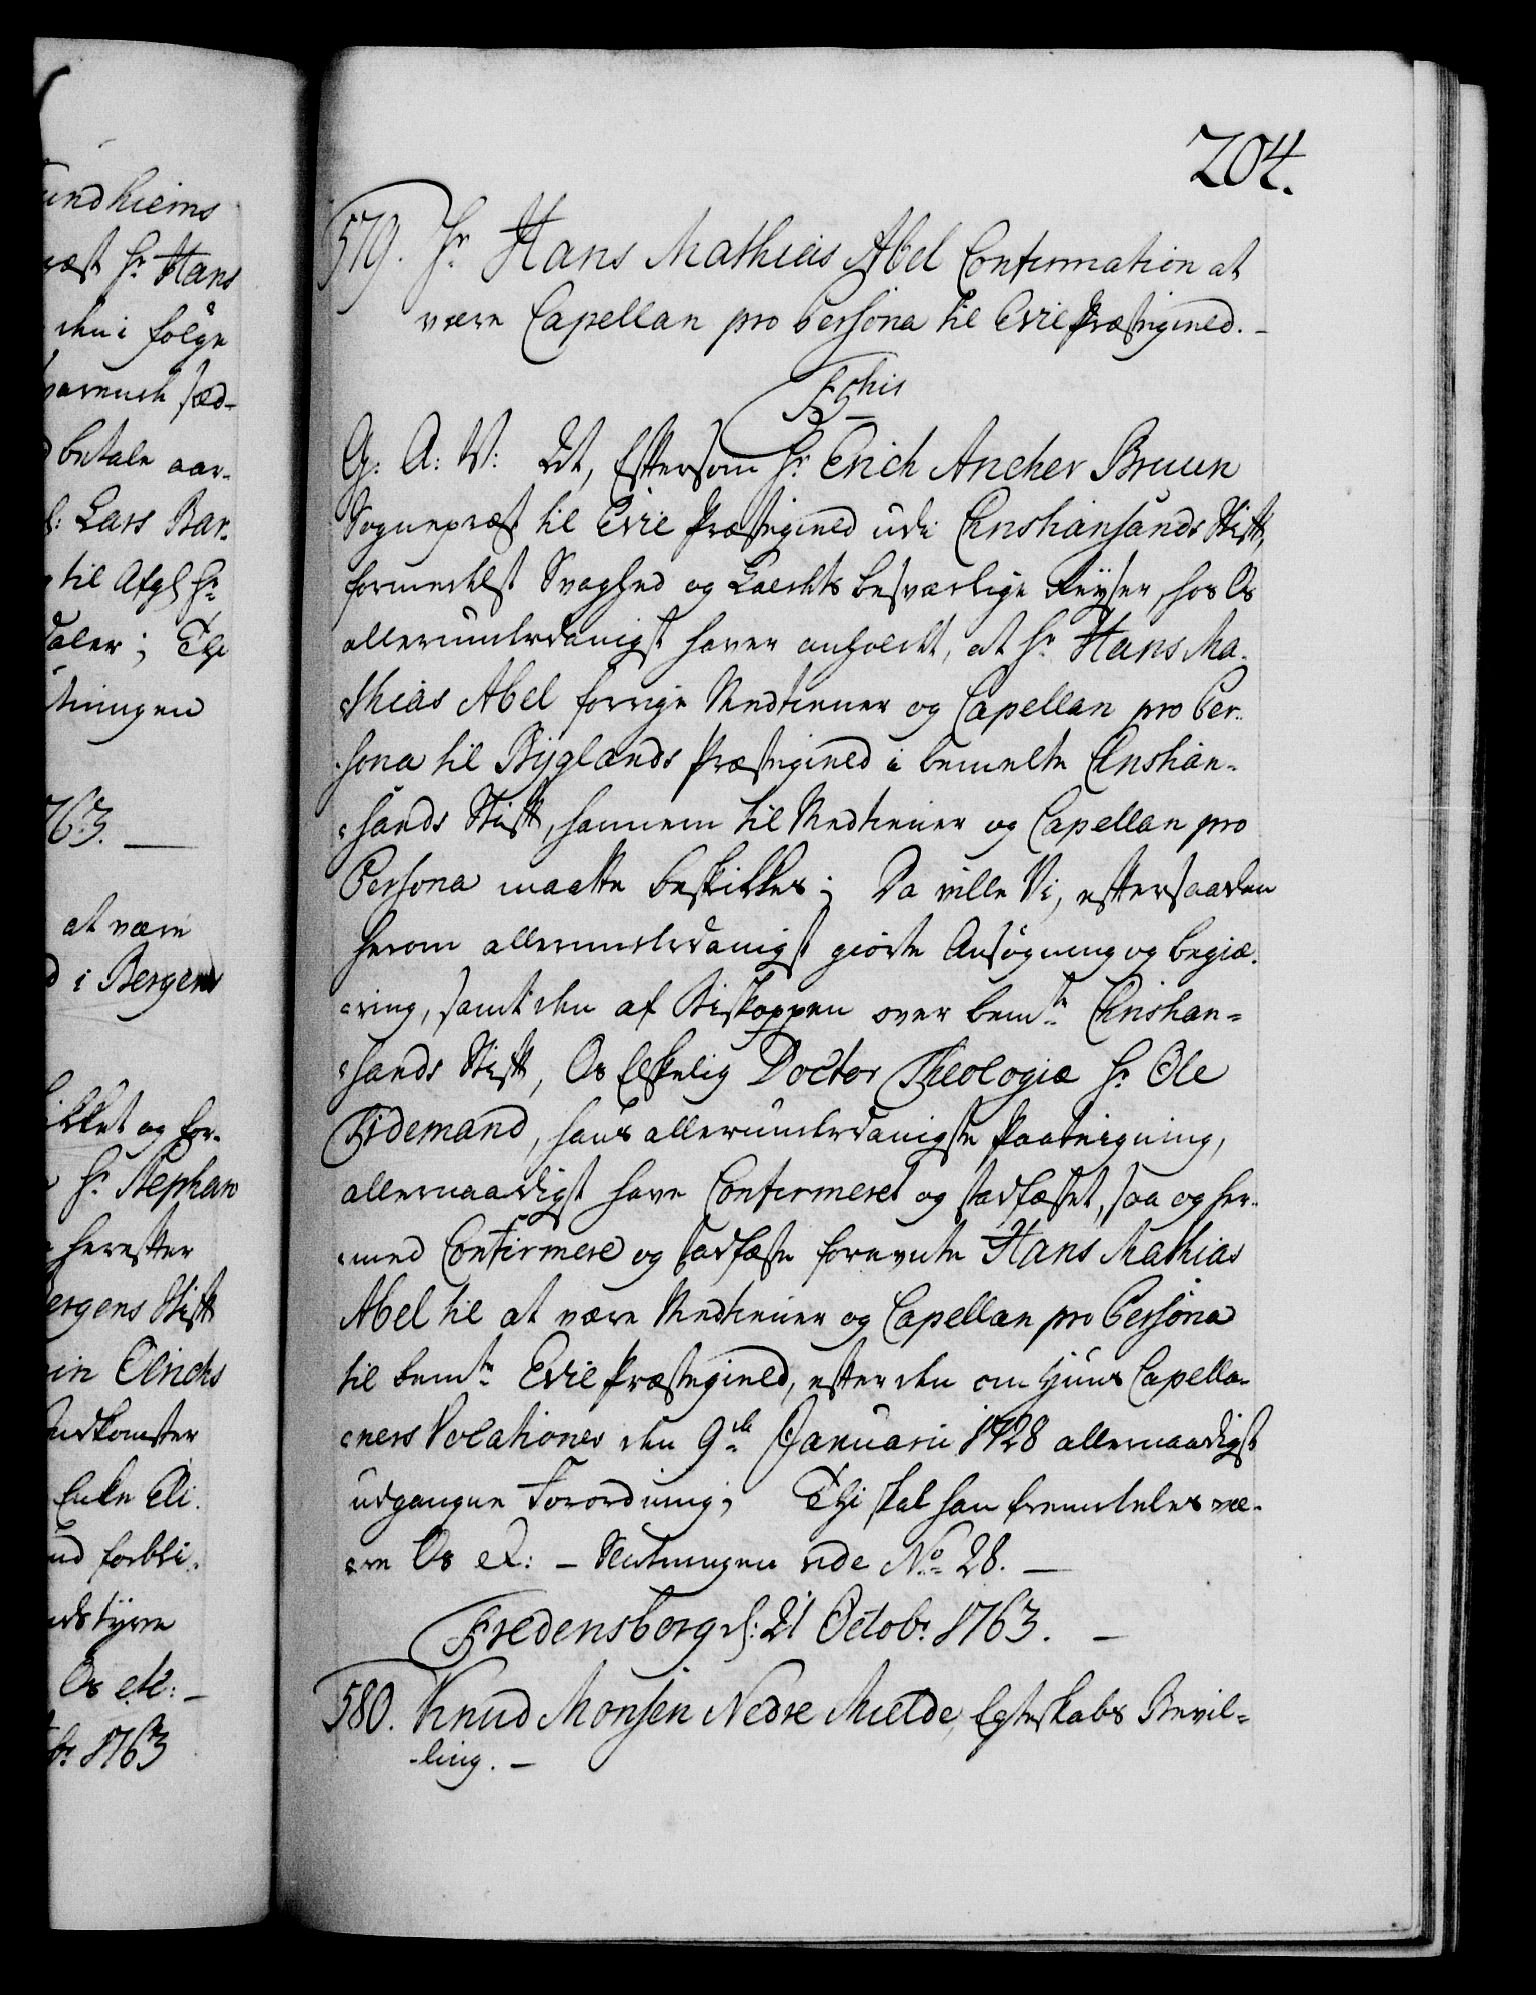 undhiems
præst Hr Hans
den i følge
varende sæd-
betale aar-
Lars Bar-
til Afgl Hr
daler; Thi
utningen
763. —
at være
i Bergens
ikket og for-
Hr Stephan
herefter
Bergens Stift
in Elrichs
Indkomster
Enke Eli-
ud forbli-
Os etc: -
br 1763
204.
579. Hr Hans Mathias Abel Confirmation at
være Capellan pro Persona til Evie Præstegield. -
F5this
G: A: V: At, Eftersom Hr Erich Ancher Bruun
Sognepræst til Evie Præstegield udi Christiansands Stift,
formedelst Svaghed og Laechts besværlige Reyser, hos Os
allerunderdanigst haver anholdt, at Hr Hans Ma-
thias Abel forrige Medtiener og Capellan pro Per-
sona til Byglands Præstegield i bemelte Christian-
sands Stift, hannem til Medtiener og Capellan pro
Persona maatte beskikkes; Da ville Vi, eftersaadan
herom allerunderdanigst giorte Ansøgning og begiæ-
ring, samt den af Biskoppen over bemte Christian=
sands Stift, Os Elskelig Doctor Theologiæ Hr Ole
Tidemand, hans allerunderdanigste Paategning,
allernaadigst have Confirmeret og stadfæstet, saa og her-
med Confirmere og stadfæste fornevnte Hans Mathias
Abel til at være Medtiener og Capellan pro Persona
til bemte Evie Præstegield, efter den om hiins Capella-
ners Vocationer den 9de Januarii 1728 allernaadigst
udgangne Forordning; Thi skal han fremdeles væ-
re Os et: - Slutningen vide No 28. —
Fredensborg d: 21 Octobr 1763. -
580. Knud Monsen Nedre Mielde, Egteskabs Bevil=
ling. -